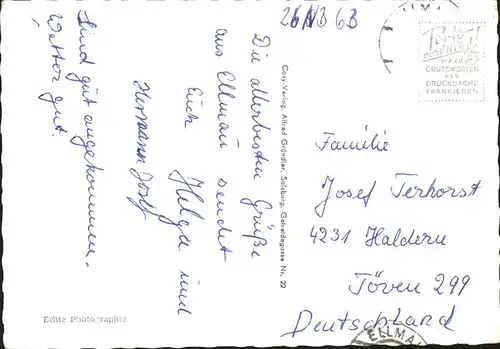 26/VIII 63
Die allerbesten Grüße
aus Ellmau sendet
Euch Helga und
Hermann Josef
Sind gut angekommen.
Wetter gut.
Echte Photographie
Cosy-Verlag, Alfred Gründler, Salzburg, Getreidegasse Nr. 22
BIS ZU 5
GRUSSWORTEN
ALS
DRUCKSACHE
FRANKIEREN
Familie
Josef Terhorst
4231 Haldern
Töven 299
Deutschland
ELLMAU